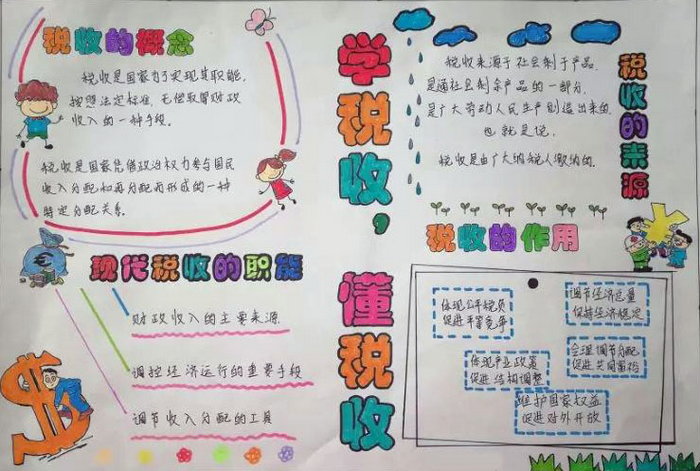 税收的概念
税收是国家为了实现其职能,
按照法定标准,无偿取得财政
收入的一种手段。
税收是国家凭借政治权力参与国民
收入分配和再分配而形成的一种
特定分配关系。
现代税收的职能
财政收入的主要来源
调控经济运行的重要手段
调节收入分配的工具
学税收,
懂税收
税收的来源
税收来源于社会剩于产品,
是通社会剩余产品的一部分,
是广大劳动人民生产创造出来的.
也就是说,
税收是由广大纳税人缴纳的.
税收的作用
体现公平税负
促进平等竞争
调节经济总量
保持经济稳定
体现产业政策
促进结构调整
合理调节分配
促进共同富裕
维护国家权益
促进对外开放